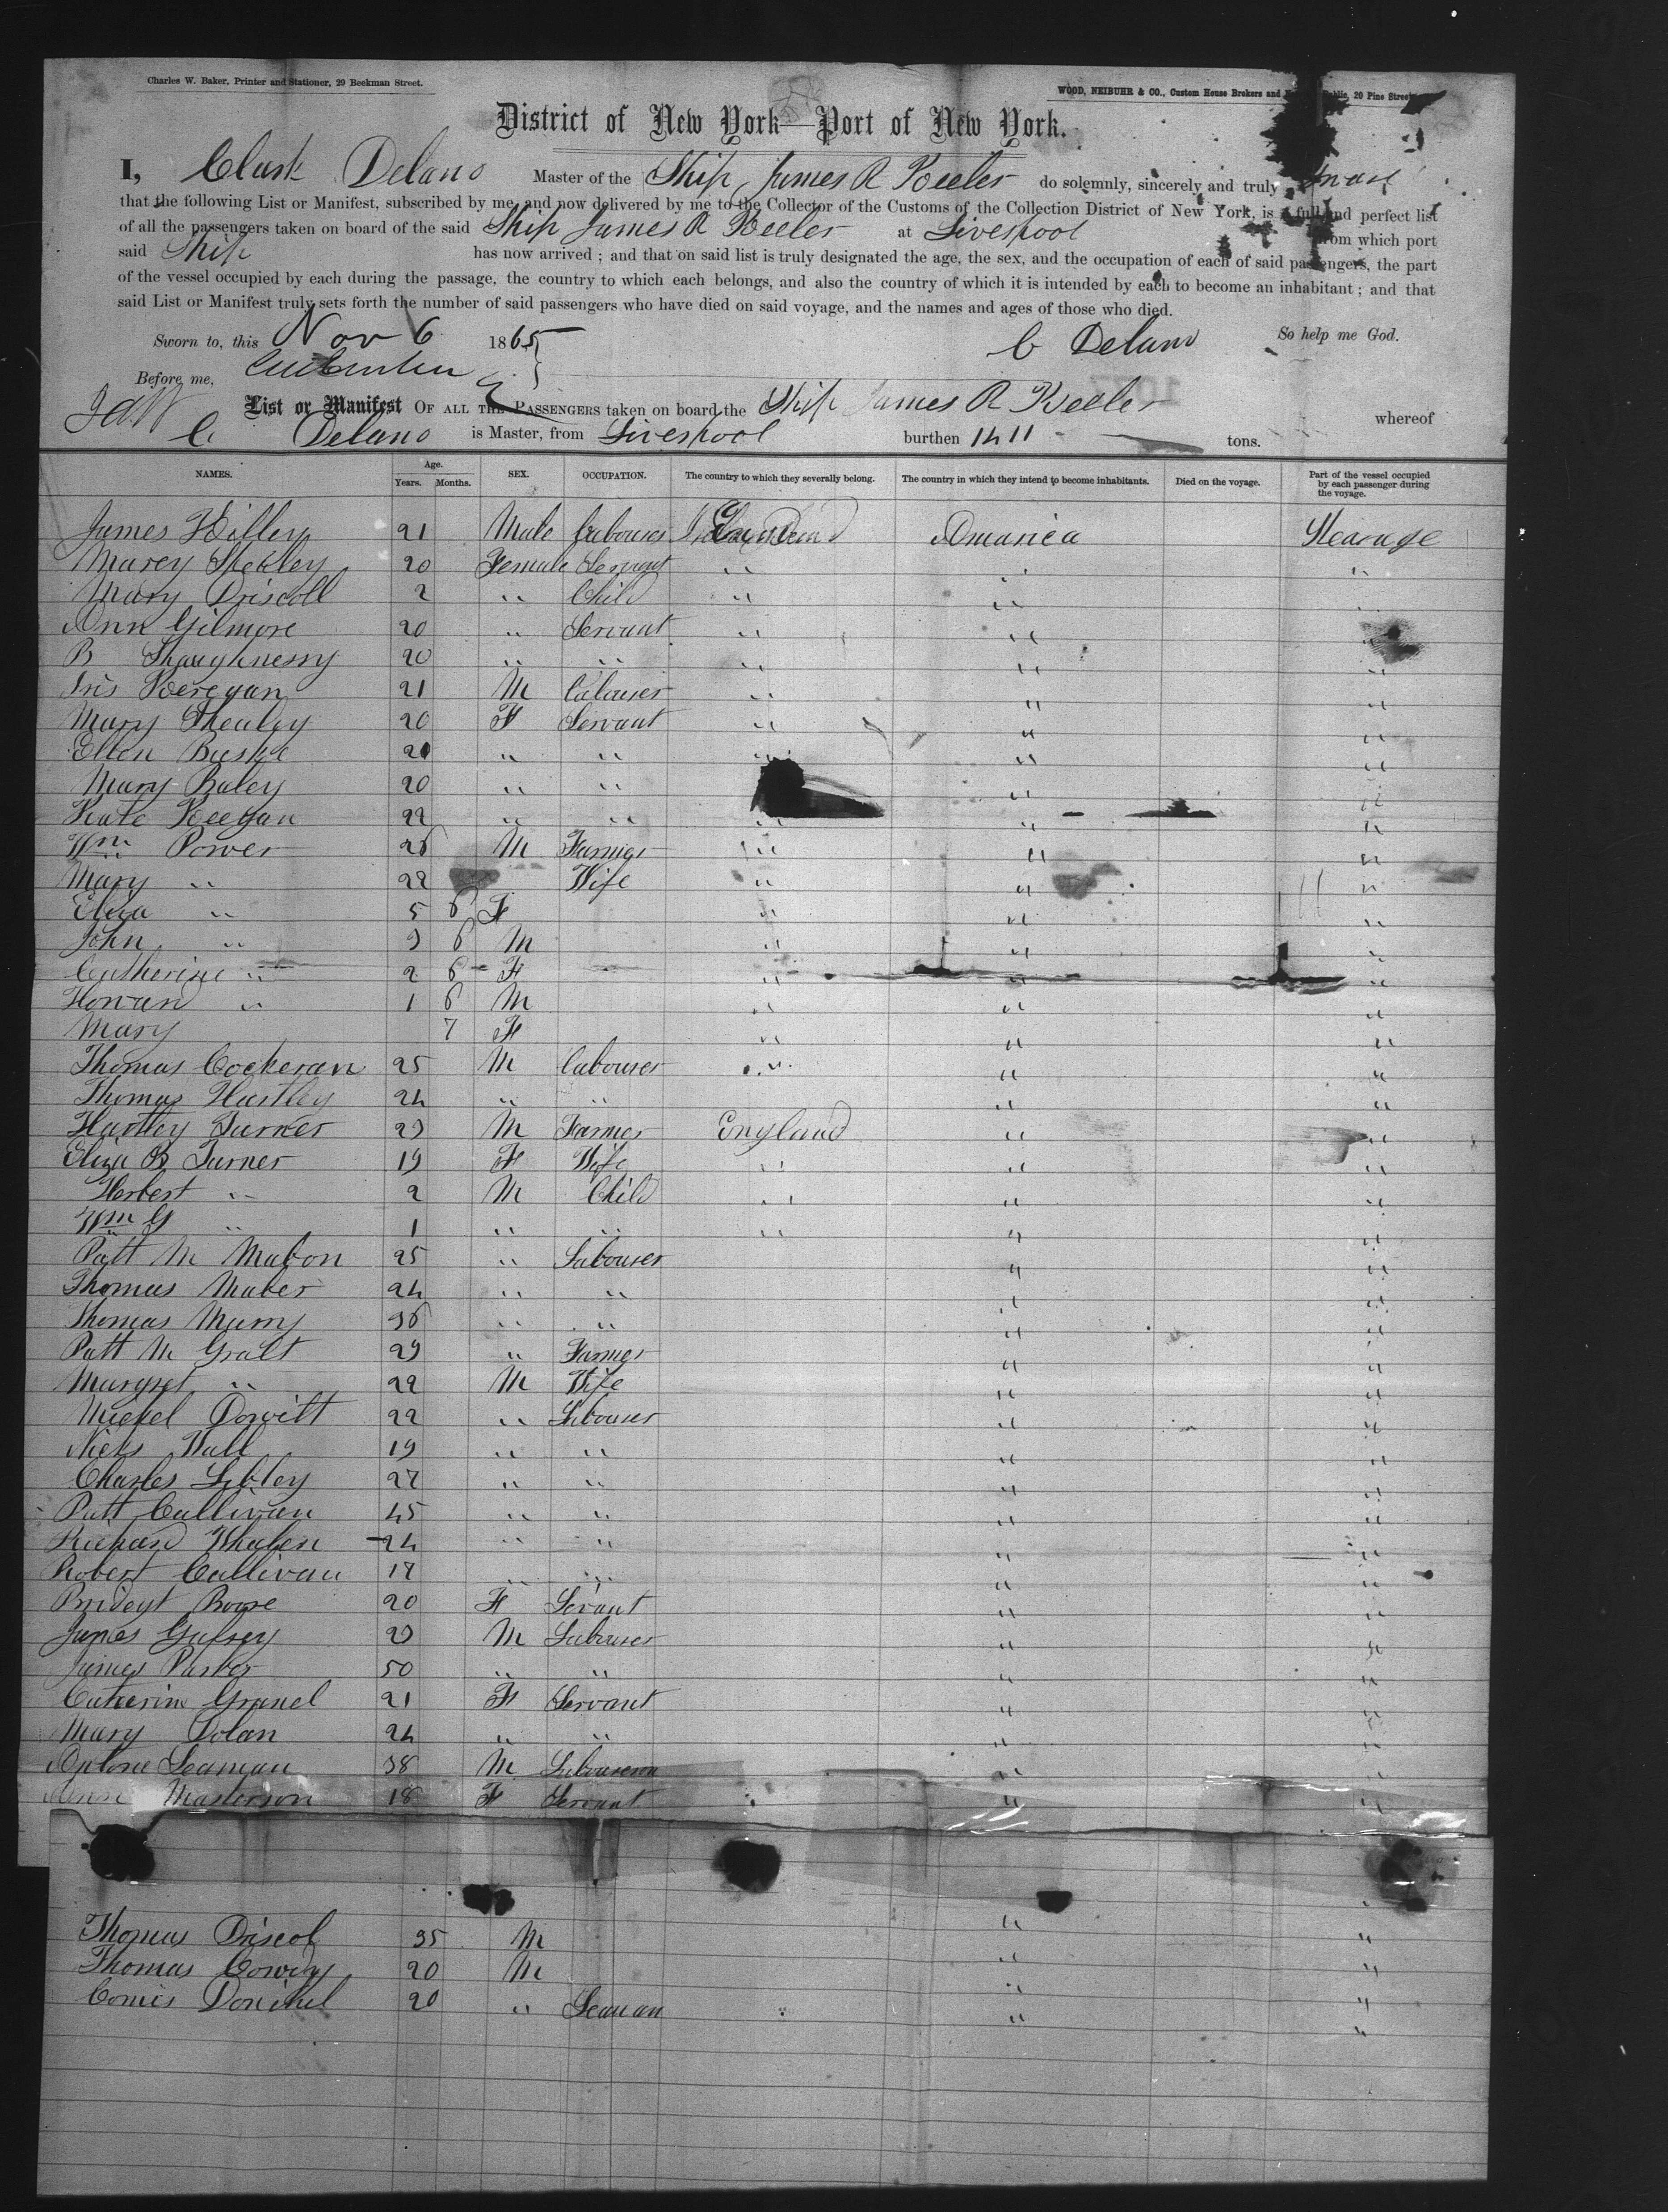 Charles W. Baker, Printer and Stationer, 29 Beekman Street.
WOOD, NEIBUHR & CO., Custom House Brokers and Public, 20 Pine Street
District of New York—Port of New York.
I, Clark Delano Master of the Ship James R Keeler do solemnly, sincerely and truly swear
that the following List or Manifest, subscribed by me, and now delivered by me to the Collector of the Customs of the Collection District of New York, is a full and perfect list
of all the passengers taken on board of the said Ship James R Keeler at Liverpool from which port
said Ship has now arrived ; and that on said list is truly designated the age, the sex, and the occupation of each of said passengers, the part
of the vessel occupied by each during the passage, the country to which each belongs, and also the country of which it is intended by each to become an inhabitant ; and that
said List or Manifest truly sets forth the number of said passengers who have died on said voyage, and the names and ages of those who died.
Sworn to, this Nov 6 1865 C Delano So help me God.
Before me,
List or Manifest OF ALL THE PASSENGERS taken on board the Ship James R Keeler whereof
C. Delano is Master, from Liverpool burthen 1411 tons.
NAMES. Age. Years. Months. SEX. OCCUPATION. The country to which they severally belong. The country in which they intend to become inhabitants. Died on the voyage. Part of the vessel occupied by each passenger during the voyage.
James 21 Male Labourer America Stearage
Marey 20 Female Servant " " "
Mary Driscoll 2 " Child " " "
Ann Gilmore 20 " Servant " " "
B Shaughnessy 20 " " " " "
Keregan 21 M Labourer " " "
Mary 20 F Servant " " "
Ellen 20 " " " " "
Mary Baley 20 " " " " "
Kate Keegan 22 " " " " "
Wm Power 26 M Farmer " " "
Mary " 22 Wife " " "
Eliza " 5 6 F " " "
John " 3 6 M " " "
Catherine " 2 6 F " " "
Howard " 1 6 M " " "
Mary 7 F " " "
Thomas Cockeran 25 M Labourer " " "
Thomas Hartley 24 " " " "
Hartley Turner 23 M Farmer England " "
Eliza B Turner 19 F Wife " " "
Herbert " 2 M Child " " "
Wm G " 1 " " " " "
Patt M Mahon 25 " Labourer " "
Thomas Maher 24 " " " "
Thomas Murry 36 " " " "
Patt M Gratt 23 " Farmer " "
Margret " 22 M Wife " "
Mickel Dowitt 22 " Labourer " "
Nicks Wall 19 " " " "
Charles 27 " " " "
Patt Cullivan 45 " " " "
Richard Whalen 24 " " " "
Robert Cullivan 17 " " " "
Bridgyt 20 F Servant " "
James 23 M Labourer " "
James Parker 50 " " " "
Catherine 21 F Servant " "
Mary Dolan 24 " " " "
Seaman 38 M " "
Masterson 18 F Servant " "
Thomas Driscol 35 M " "
Thomas 20 M " "
20 " Seaman " "